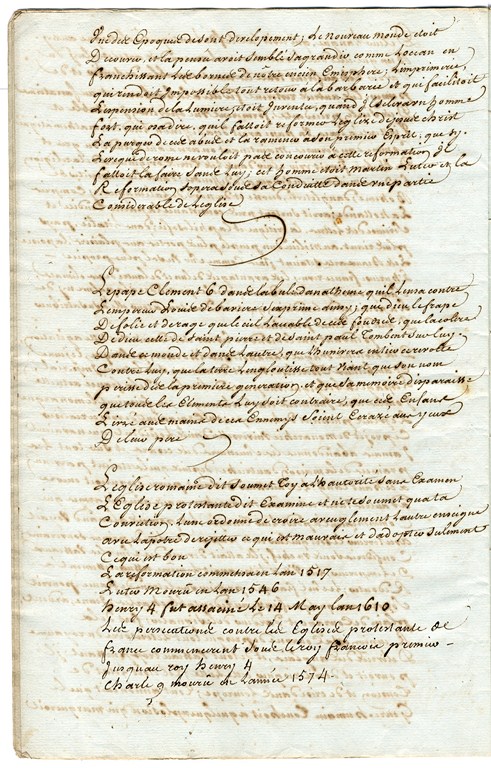 une des Epoques de sont developement; Le nouveau monde etoit
Decouvri, et la pensée avoit semblé sagrandir comme locean en
franchissant Les bornes de nôtre encien Emisphere; Limprimerie,
qui rendoit Impossible tout retour a la barbarie et qui facilitoit
Lexpension de la Lumiere, etoit Inventée, quand Il seleva un homme
fort, qui osa dire, quil falloit reformer Leglize de jesus christ
La purger de ces abus et la ramener a son premier Esprit, que sy
Leveque de rome ne vouloit pas concourir a cette reformation Il
falloit la faire sans Luy; cet homme etoit martin Luter et la
Reformation sopera sous sa Conduitte dans une partie
Considerable de Leglise
Le pape Clement 6 dans la bule danatheme quil Lensa contre
Lempereur Louis de baviere sexprime ainsy; que dieu le frape
De folie et de rage que le ciel Lacable de ces foudres, que la colere
De dieu celle de saint pierre et de saint paul Tombent sur Luy
Dans ce monde et dans Lautre, que Lhunivers entier ce revolte
Contre Luy, que la terre Lengloutisse tout vivant que son nom
perisse des la premiere generation, et que sa memoire disparaisse
que tous les Elements Luy soit contraire, que ces Enfans
Livrés aux mains de ces Ennemys soient Ecrazés aux yeux
De leur père
L'eglise romaine dit soumet toy a Lhautorité sans Examen;
L'Eglise protestante dit Examine et ne te soumet qua ta
Conviction, L'une ordonne de croire aveuglement Lautre enseigne
avec Lapotre de rejetter ce qui est mauvais et dadopter seulement
Ce qui est bon
La reformation commensa en Lan 1517
Luter mourü en Lan 1546
henry 4 fut assaciné Le 14 May Lan 1610
Les persecutions contre les Eglises protestante de
france commencerent sous le roy francois premier
jusquau roy henry 4
Charle 9 mourü en Lannée 1574